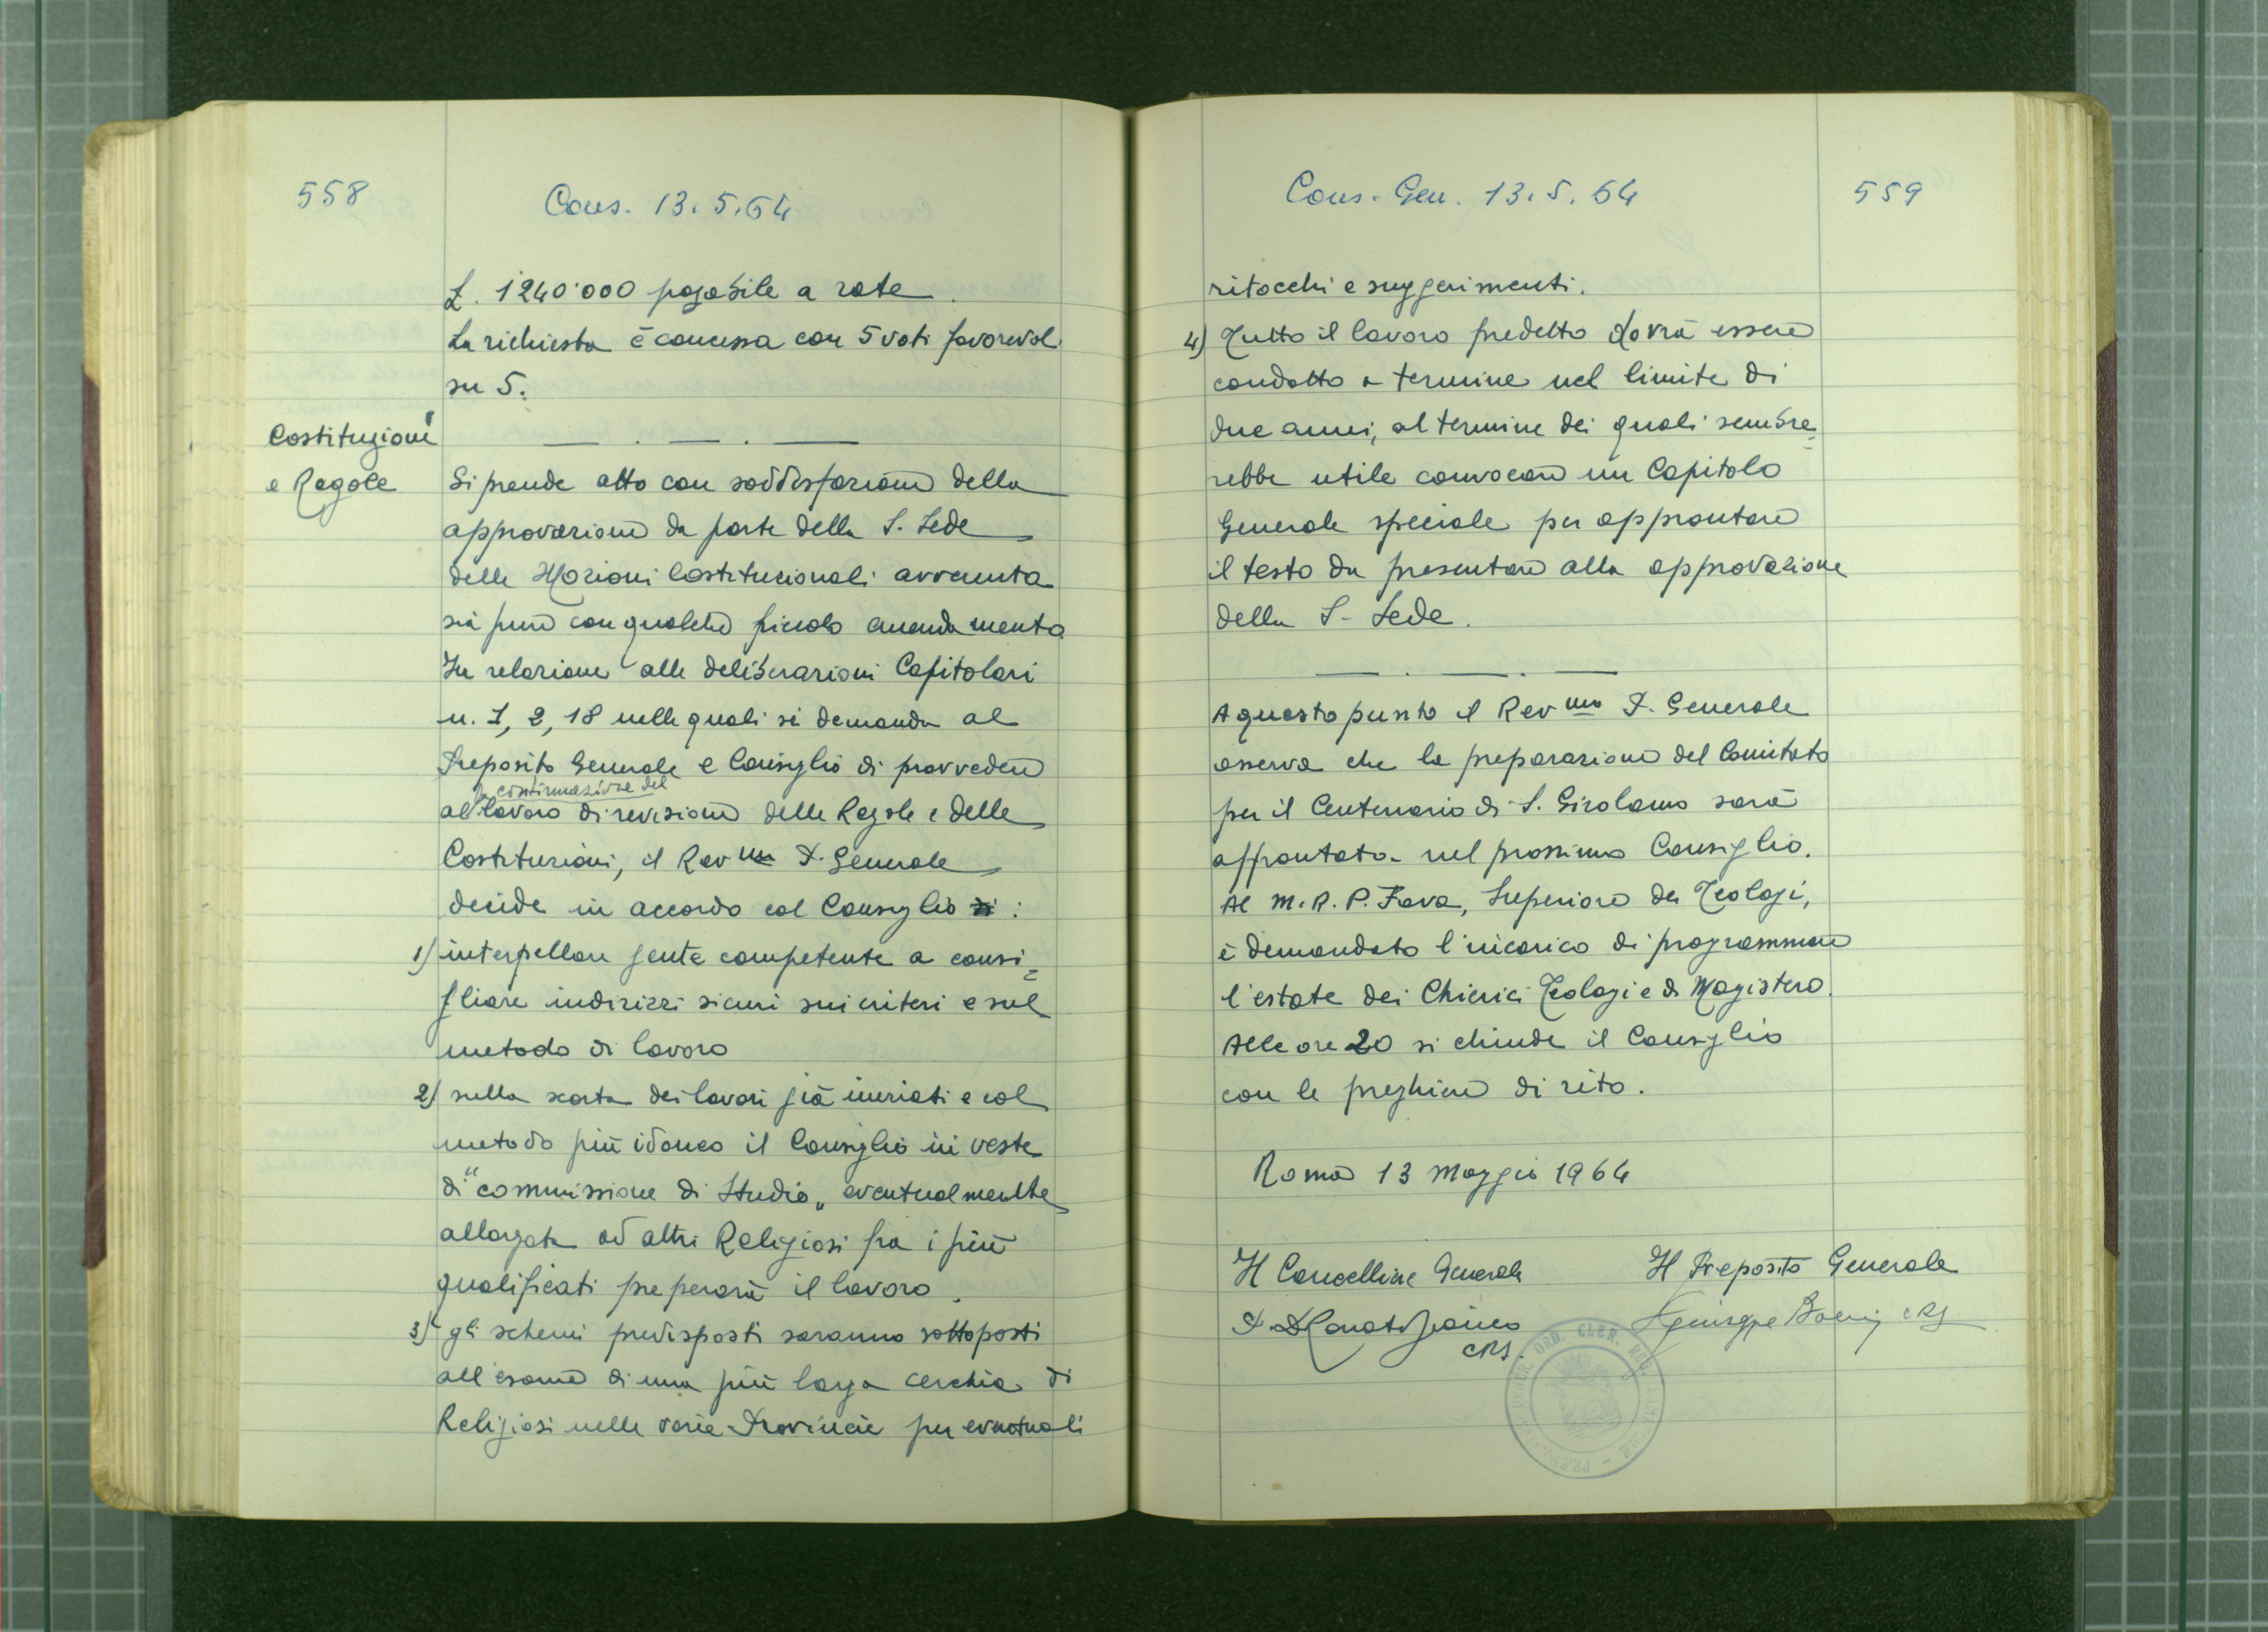 558
Cons. 13.5.64
L. 1240'000 pagabile a rate.
La richiesta è concessa con 5 voti favorevoli
su 5.
Costituzioni
e Regole
Si prende atto con soddisfazione della
approvazione da parte della S. Sede
delle Mozioni Costituzionali avvenuta
sia pure con qualche piccolo emendamento
In relazione alle deliberazioni Capitolari
n. 1, 2, 18 nelle quali si demanda al
Preposito Generale e Consiglio di provvedere
la continuazione del
al lavoro di revisione delle Regole e delle
Costituzioni, il Rev mo P. Generale
decide in accordo col Consiglio di :
1) interpellare gente competente a consi=
gliare indirizzi sicuri sui criteri e sul
metodo di lavoro
2) sulla scorta dei lavori già iniziati e col
metodo più idoneo il Consiglio in veste
di "commissione di Studio„ eventualmente
allargata ad altri Religiosi fra i più
qualificati preperarà il lavoro.
3) gli schemi predisposti saranno sottoposti
all'esame di una più larga cerchia di
Religiosi nelle varie Provincie per eventuali
Cons. Gen. 13.5.64
559
ritocchi e suggerimenti.
4) Tutto il lavoro predetto dovrà essere
condotto a termine nel limite di
due anni, al termine dei quali sembre=
rebbe utile convocare un Capitolo
Generale speciale per approntare
il testo da presentare alla approvazione
della S. Sede.
A questo punto il Rev mo P. Generale
osserva che la preparazione del Comitato
per il Centenario di S. Girolamo sarà
affrontata nel prossimo Consiglio.
Al M. R. P. Fava, Superiore dei Teologi,
è demandato l'incarico di programmare
l'estate dei Chierici Teologi e di Magistero.
Alle ore 20 si chiude il Consiglio
con le preghiere di rito.
Roma 13 Maggio 1964
Il Cancelliere Generale
Il Preposito Generale
CRS.
Giuseppe CRS
ORD. CLER. REG.